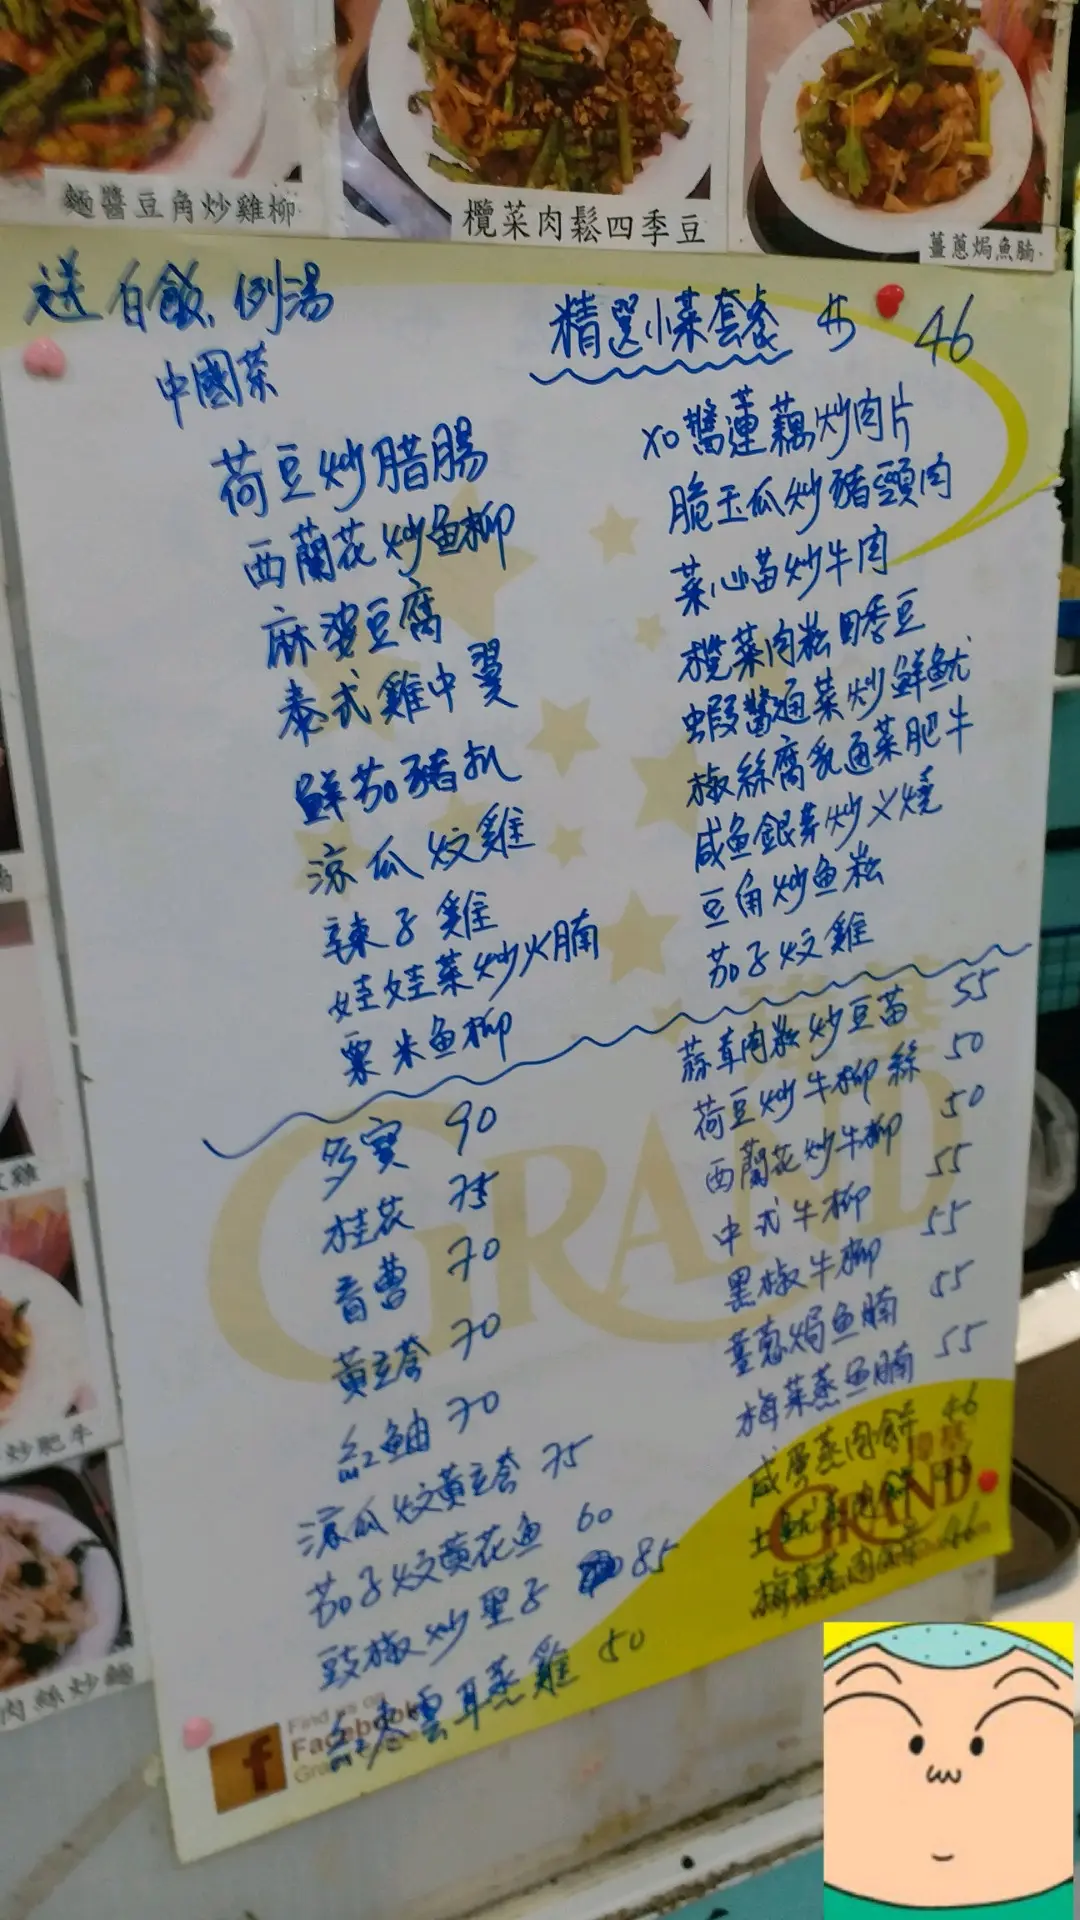 麵醬豆角炒雞柳
欖菜肉鬆四季豆
薑蔥焗魚腩
送白飯,例湯
中國菜
荷豆炒腊腸
西蘭花炒魚柳
麻婆豆腐
泰式雞中翼
鮮茄豬扒
涼瓜炆雞
辣子雞
娃娃菜炒火腩
粟米魚柳
多寶 90
桂花 75
盲曹 70
黃立倉 70
紅鮋 70
涼瓜炆黃立倉 75
茄子炆黃花魚 60
豉椒炒聖子 85
紅棗雲耳蒸雞 50
精選小菜套餐 45 46
XO醬蓮藕炒肉片
脆玉瓜炒豬頸肉
菜心苗炒牛肉
欖菜肉崧四季豆
蝦醬通菜炒鮮魷
椒絲腐乳通菜肥牛
咸魚銀芽炒义燒
豆角炒魚崧
茄子炆雞
蒜茸肉崧炒豆苗 55
荷豆炒牛柳絲 50
西蘭花炒牛柳 50
中式牛柳 55
黑椒牛柳 55
薑蔥焗魚腩 55
梅菜蒸魚腩 55
咸蛋蒸肉餅 46
土魷蒸肉餅
梅菜蒸肉餅 46
GRAND
GRAND
Find us on
Facebook
f
炒肥牛
肉絲炒麵